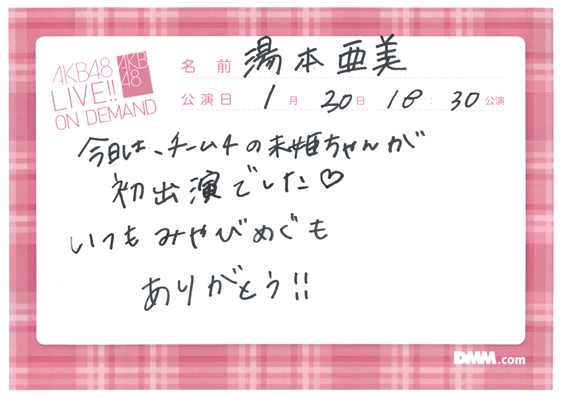 AKB48
LIVE!!
ON DEMAND
AKB
48
名前 湯本亜美
公演日 1月 20日 18:30公演
今日は、チーム4の未姫ちゃんが
初出演でした♡
いつもみやびめぐも
ありがとう!!
DMM.com